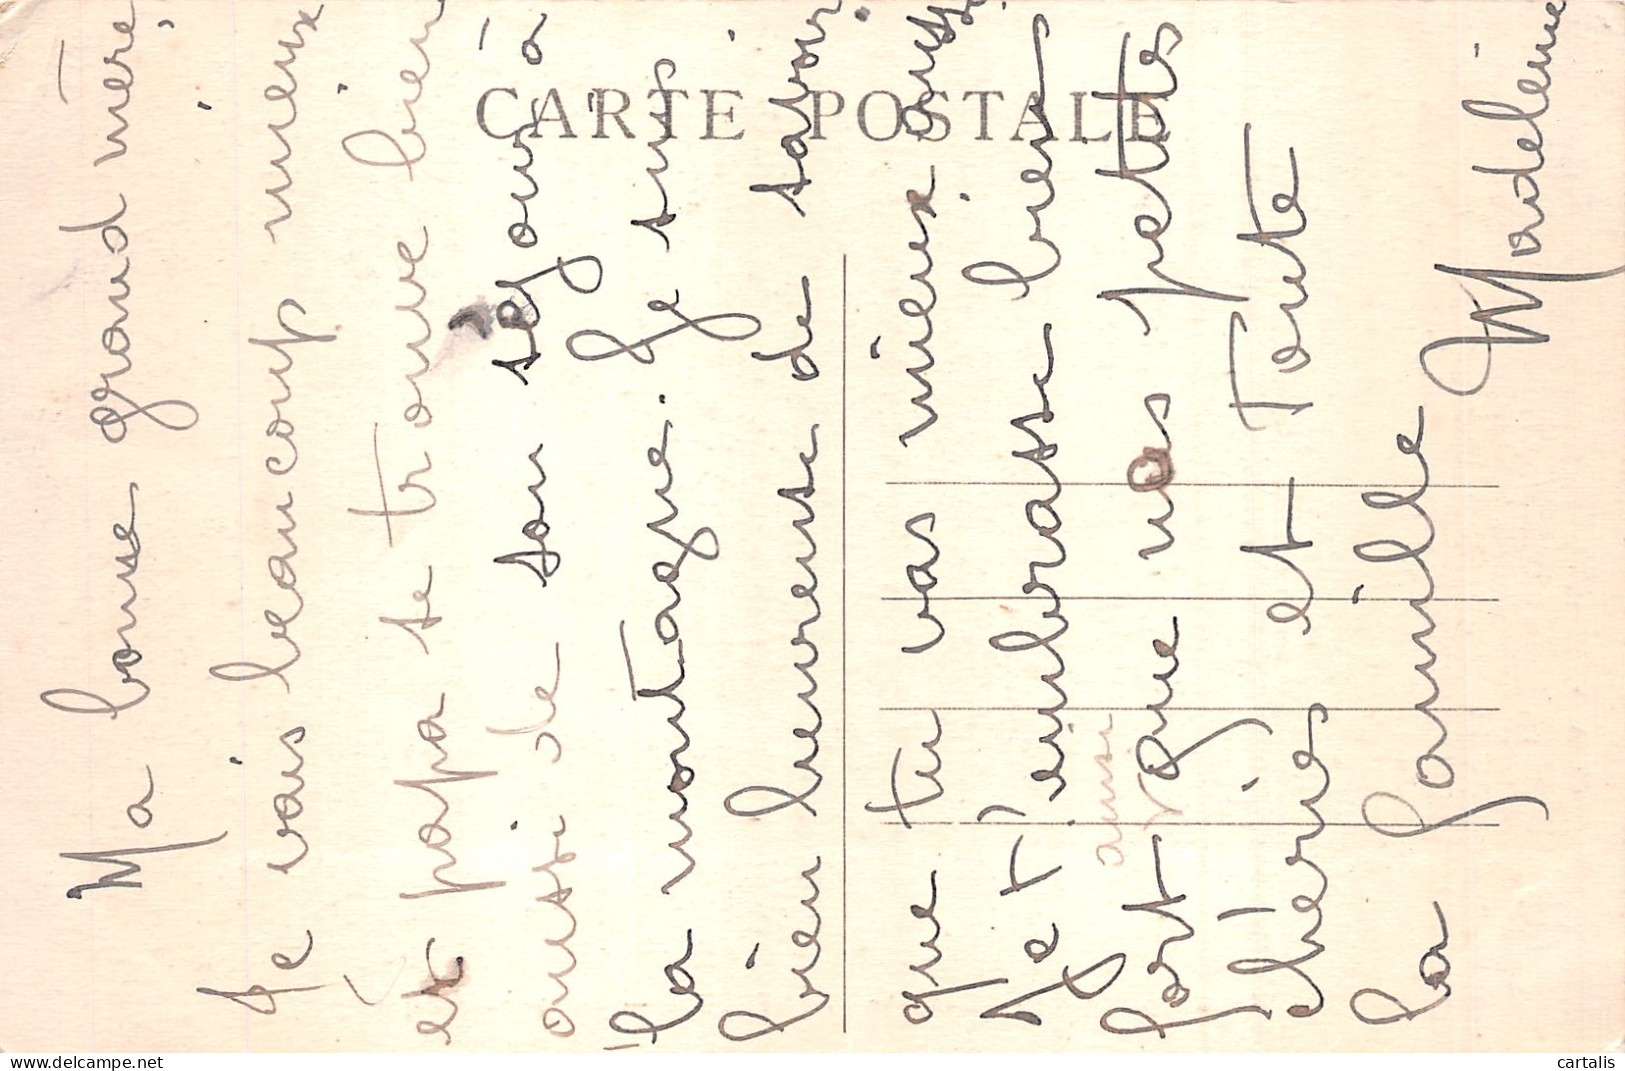 CARTE POSTALE
Ma bonne grand mère,
Je vais beaucoup mieux
et papa se trouve bien
aussi de son séjour à
la montagne. Je suis
bien heureuse de savoir
que tu vas mieux aussi
Je t'embrasse bien
fort ainsi que mes petites
chéries et Toute
la famille
Madeleine
cartalis